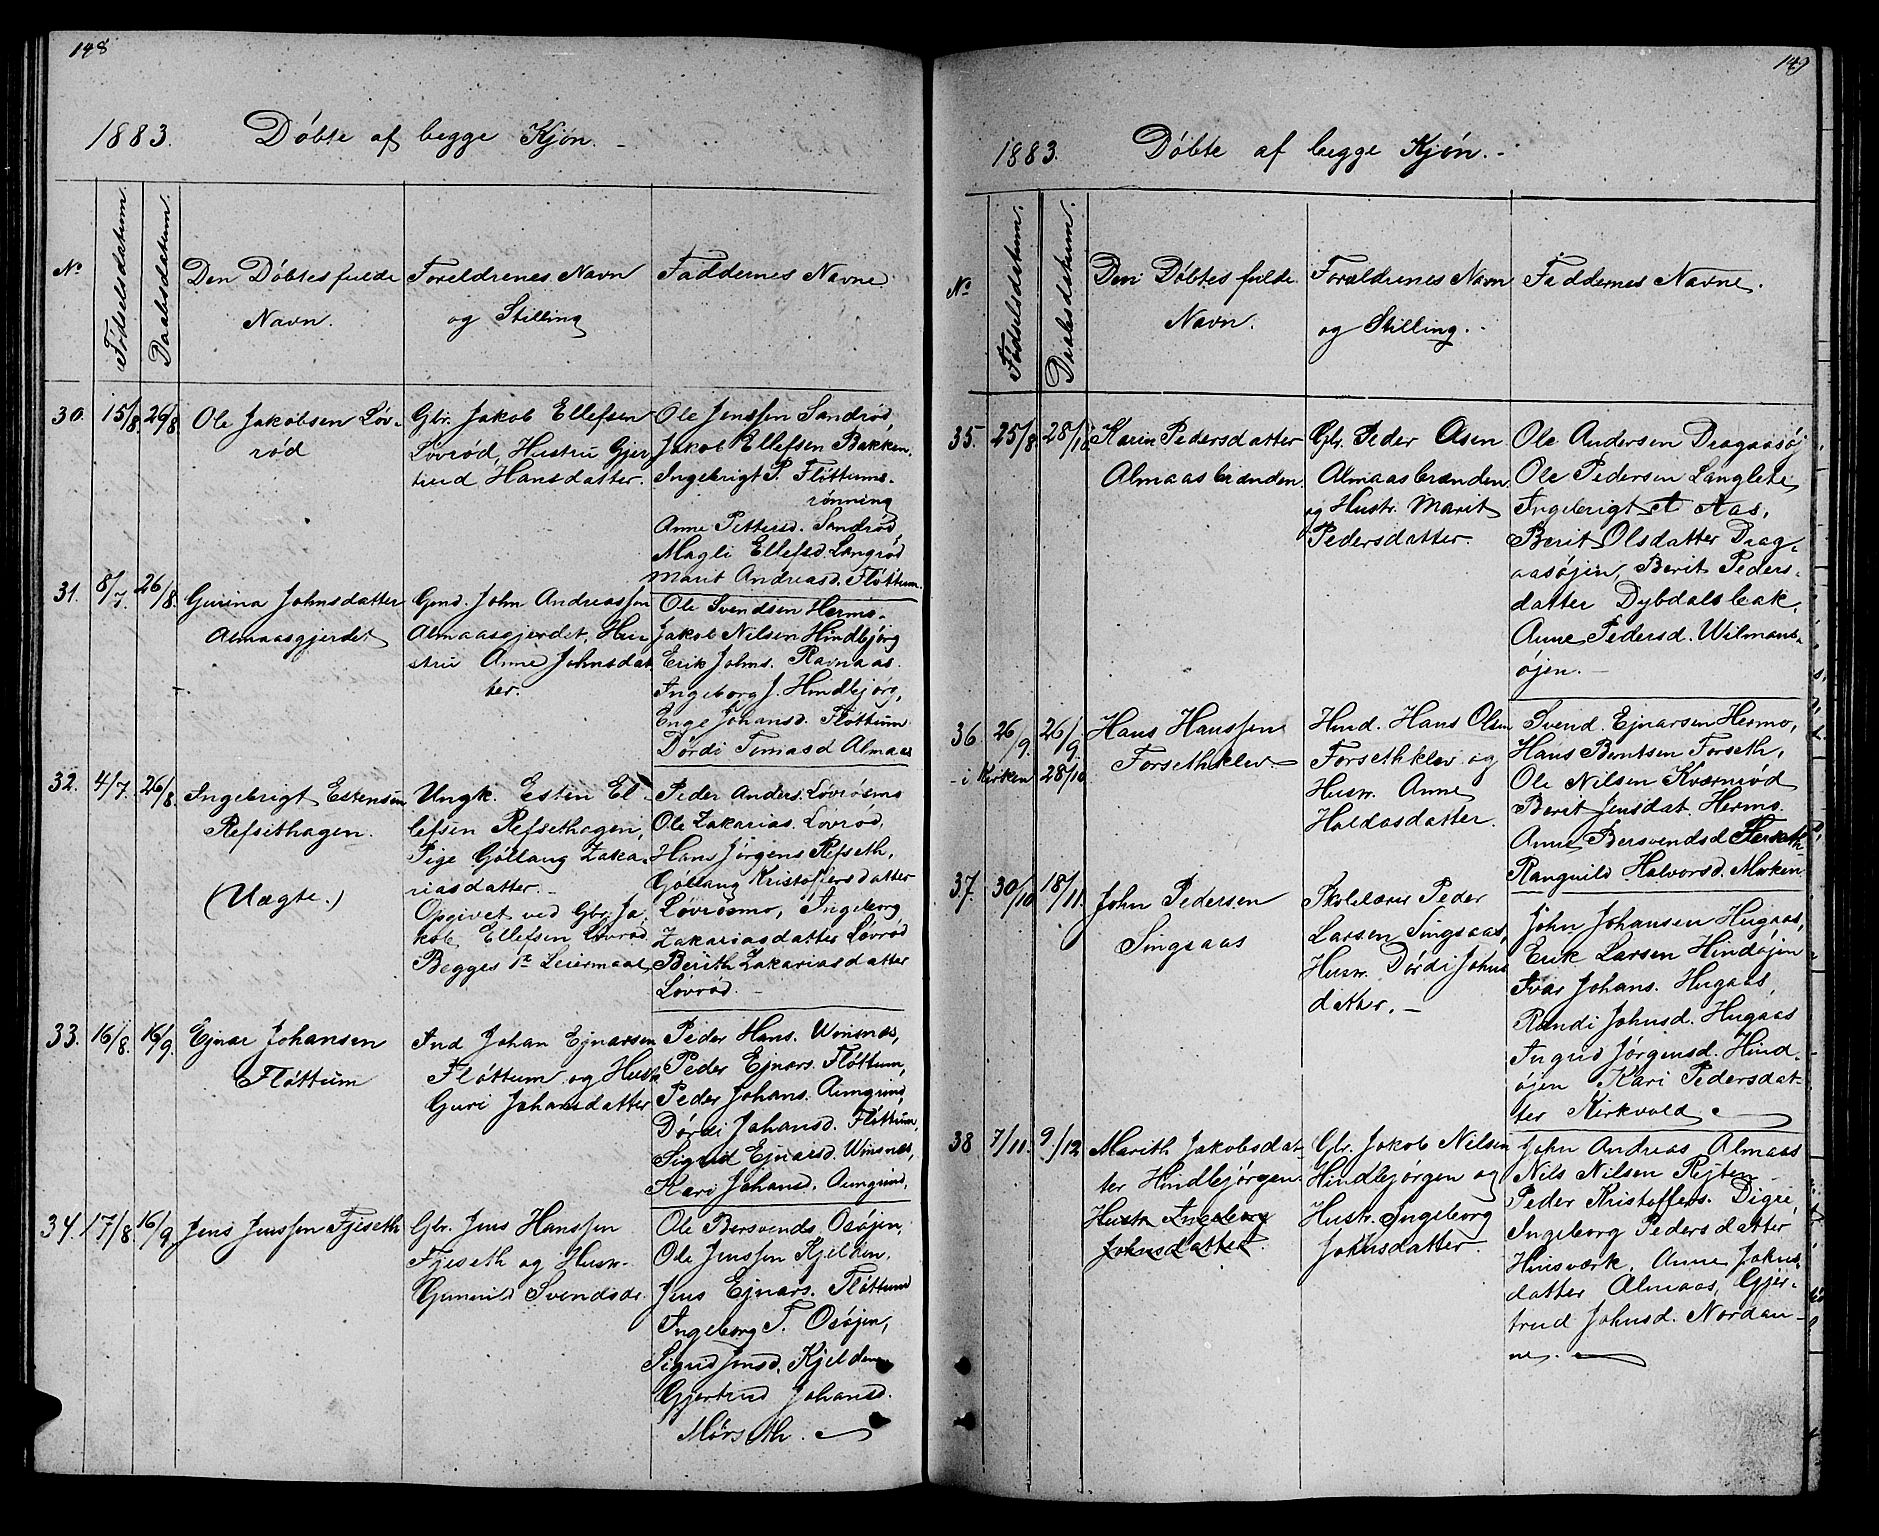 148
1883. Döbte af begge Kjön. -
No
Födselsdatum
Daabsdatum.
Den Döbtes fulde
Navn.
Foreldrenes Navn
og Stilling
Faddernes Navne
30. 15/8. 26/8.
Ole Jakobsen Löv-
röd
Gbr. Jakob Ellefsen
Lövröd, Hustru Gjer
trud Hansdatter.
Ole Jenssen Sandröd,
Jakob Ellefsen Bakken,
Ingebrigt P. Flöttums-
rönning
Anne Pettersd. Sandröd,
Magli Ellefsd. Langröd
Marit Andreasd. Flöttum.
31. 8/7. 26/8.
Gurina Johnsdatter
Almaasgjerdet
Gmd. John Andreassen
Almaasgjerdet, Hu-
stru Anne Johnsdat
ter.
Ole Svendsen Hermo.
Jakob Nilsen Hindbjörg
Erik Johns. Ravnaas.
Ingeborg J. Hindbjörg,
Enge Johansd. Flöttum
Dördi Tomasd Almaas
32. 4/7. 26/8.
Ingebrigt Estensen
Refsethagen.
(Uægte.)
Ungk. Esten El-
lefsen Refsethagen,
Pige Göllaug Zaka-
riasdatter. -
Opgivet ved Gbr. Ja-
kob Ellefsen Lövröd
Begges 1ste Leiermaal,
Peder Anders. Lövrösmo
Ole Zakarias. Lövröd,
Hans Jörgens Refseth,
Göllaug Kristoffersdatter
Lövrösmo, Ingeborg
Zakariasdatter Lövröd
Berith Zakariasdatter
Lövröd. -
33. 16/8. 16/9.
Ejnar Johansen
Flöttum
Ind Johan Ejnarsen
Flöttum og Hustr.
Guri Johansdatter
Peder Hans. Winsnes,
Peder Ejnars. Flöttum,
Peder Johans. Aungrind,
Dördi Johansd. Flöttum,
Sigrid Ejnarsd. Winsnes,
Kari Johansd. Aungrind.
34. 17/8. 16/9
Jens Jenssen Fjeseth
Gbr. Jens Hanssen
Fjeseth og Hustr.
Gunnild Svendsdr.
Ole Bersvends. Osöjen,
Ole Jenssen Kjelden,
Jens Ejnars. Flöttum
Ingeborg T. Osöjen,
Sigrid Jensd. Kjelden
Gjertrud Johansd.
Mörseth.
149
1883. Döbte af begge Kjön. -
No
Födselsdatum.
Daabsdatum.
Den Döbtes fulde
Navn.
Forældrenes Navn
og Stilling. -
Faddernes Navne.
35. 25/8 28/10.
Karin Pedersdatter
Almaasbrænden
Gbr. Peder Osen
Almaasbrænden
og Hustr. Marit
Pedersdatter.
Ole Andersen Dragaasöj
Ole Pedersen Langlete
Ingebrigt A Aas,
Berit Olsdatter Drag-
aasöjen, Berit Peders-
datter Dybdalsbak,
Anne Pedersd. Wilmans-
öjen. -
36. 26/9. 26/9.
- i Kirken 28/10.
Hans Hanssen
Forsethklev
Hmd. Hans Olsen
Forsethklev og
Hustr. Anne
Haldosdatter.
Svend. Ejnarsen Hermo,
Hans Berntsen Forseth,
Ole Nilsen Kværnröd
Berit Jensdat. Hermo.
Anne Bersvendsd Forseth
Rangnild Halvorsd. Morken
37. 30/10 18/11.
John Pedersen
Singsaas
Skolelærer Peder
Larsen Singsaas,
Hustr. Dördi Johns
datter. -
John Johansen Hugaas,
Erik Larsen Hindöjen
Ivar Johans. Hugaas,
Randi Johnsd. Hugaas
Ingrid Jörgensd. Hind-
öjen Kari Pedersdat-
ter Kirkvold
38 7/11. 9/12
Marith Jakobsdat-
ter Hindbjörgen.
Hustr. Ingeborg
Johnsdatter.
Gbr. Jakob Nilsen
Hindbjörgen og
Hustr. Ingeborg
Johnsdatter.
John Andreas Almaas
Nils Nilsen Rejten
Peder Kristoffers. Digre,
Ingeborg Pedersdatter
Hinsværk, Anne Johns
datter Almaas, Gjer-
trud Johnsd. Nordau-
ne.